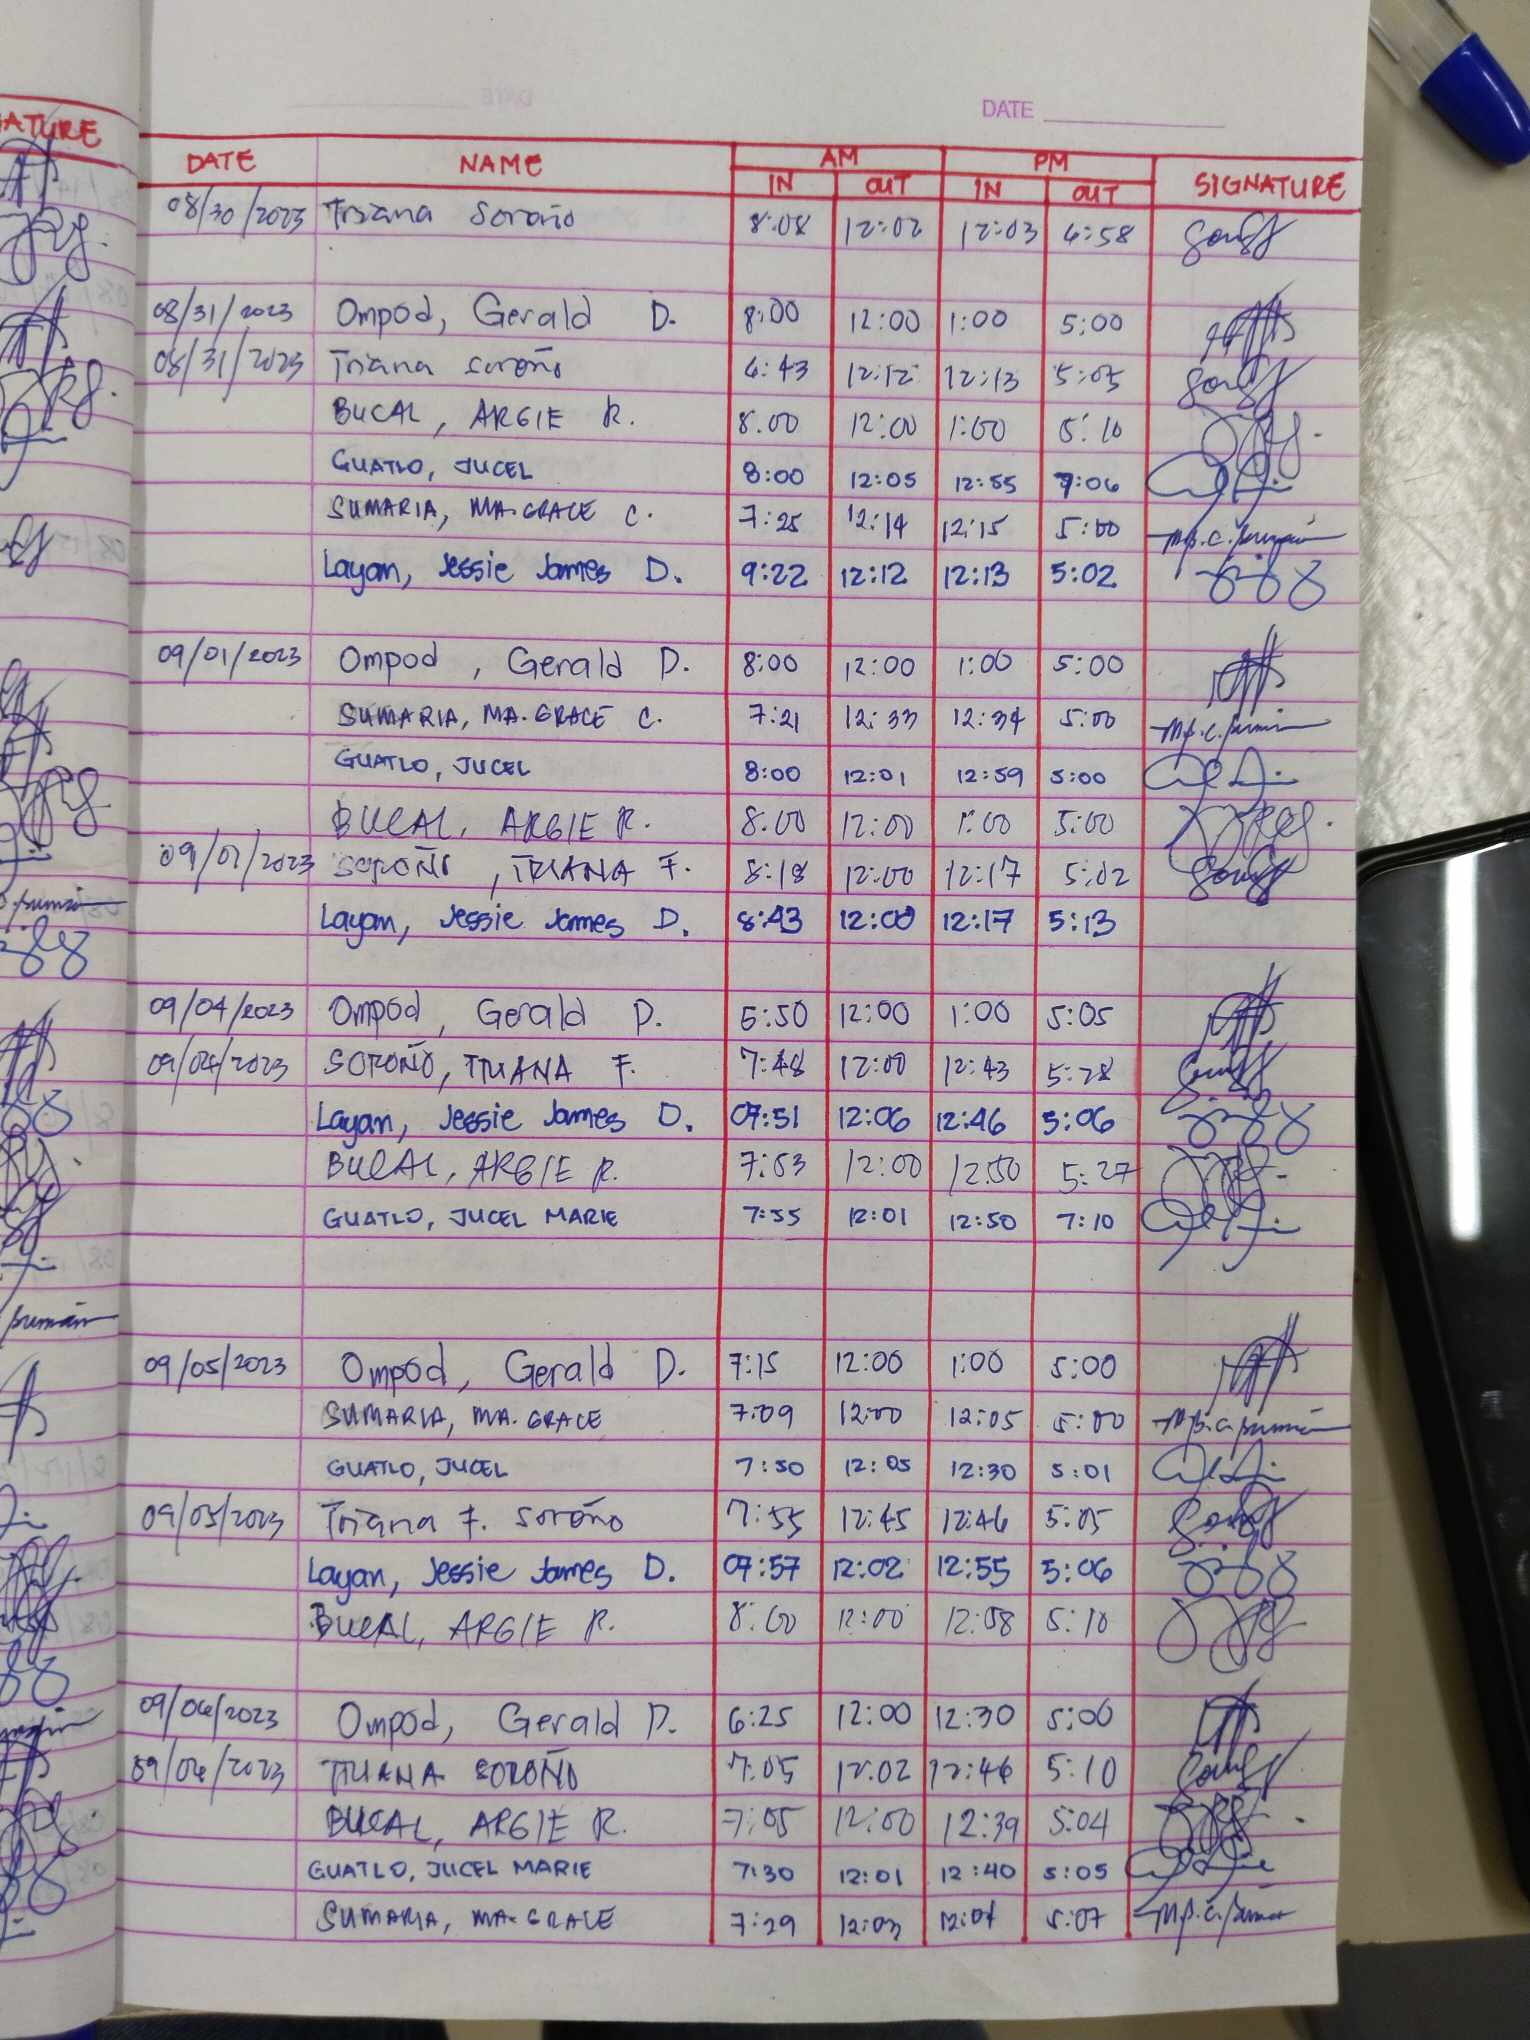 DATE
NATURE
DATE NAME AM PM SIGNATURE
IN OUT IN OUT
08/30/2023 Triana Soroño 8:08 12:02 12:03 6:58
08/31/2023 Ompod, Gerald D. 8:00 12:00 1:00 5:00
08/31/2023 Triana Soroño 6:43 12:12 12:13 5:05
BUCAL, ARGIE R. 8:00 12:00 1:00 5:10
GUATLO, JUCEL 8:00 12:05 12:55 7:06
SUMARIA, MA. GRACE C. 7:25 12:14 12:15 5:00
Layan, Jessie James D. 9:22 12:12 12:13 5:02
09/01/2023 Ompod, Gerald D. 8:00 12:00 1:00 5:00
SUMARIA, MA. GRACE C. 7:21 12:33 12:34 5:00
GUATLO, JUCEL 8:00 12:01 12:59 5:00
BUCAL, ARGIE R. 8:00 12:00 1:00 5:00
SOROÑO, TRIANA F. 8:18 12:00 12:17 5:02
Layan, Jessie James D. 8:43 12:00 12:17 5:13
09/04/2023 Ompod, Gerald D. 12:00 1:00 5:05
09/04/2023 SOROÑO, TRIANA F. 7:48 12:00 12:43 5:28
Layan, Jessie James D. 07:51 12:06 12:46 5:06
BUCAL, ARGIE R. 7:53 12:00 12:50 5:27
GUATLO, JUCEL MARIE 7:55 12:01 12:50 7:10
09/05/2023 Ompod, Gerald D. 7:15 12:00 1:00 5:00
SUMARIA, MA. GRACE 7:09 12:00 12:05 5:00
GUATLO, JUCEL 7:50 12:05 12:30 5:01
09/05/2023 Triana F. Soroño 7:55 12:45 12:46 5:05
Layan, Jessie James D. 07:57 12:02 12:55 5:06
BUCAL, ARGIE R. 8:00 12:00 12:58 5:10
09/06/2023 Ompod, Gerald D. 6:25 12:00 12:30 5:00
09/06/2023 TRIANA SOROÑO 7:05 12:02 12:46 5:10
BUCAL, ARGIE R. 7:05 12:00 12:39 5:04
GUATLO, JUCEL MARIE 7:30 12:01 12:40 5:05
SUMARIA, MA. GRACE 7:29 12:03 12:04 5:07